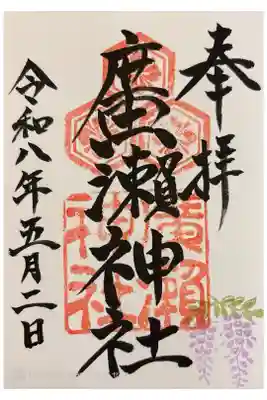 奉拝
廣瀬神社
廣瀬神社
令和八年五月二日